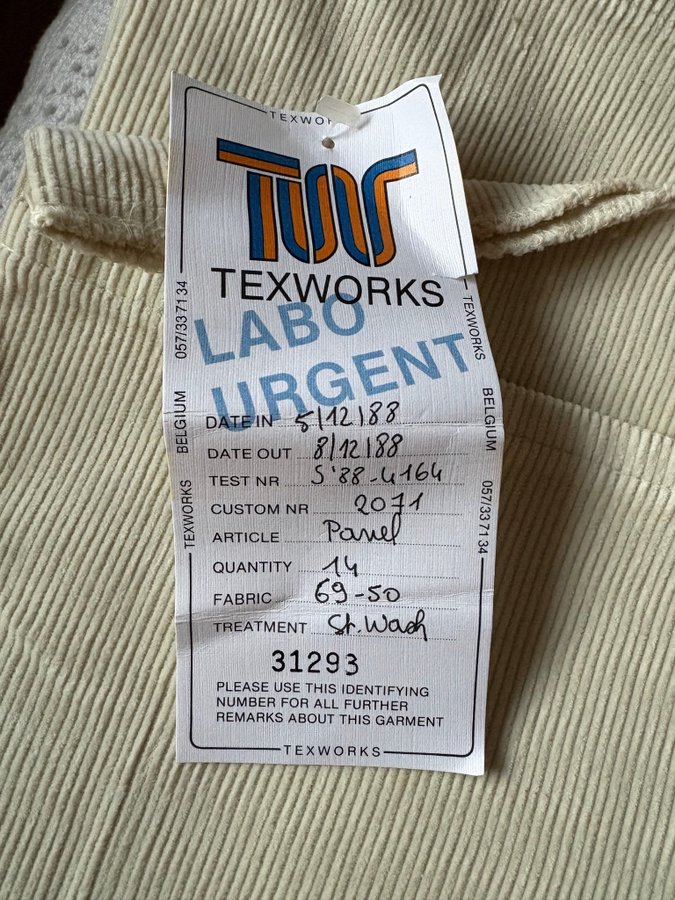 TEXWOR
TEXWORKS
LABO
URGENT
DATE IN 5/12/88
DATE OUT 8/12/88
TEST NR S'88-4164
CUSTOM NR 2071
ARTICLE Panel
QUANTITY 14
FABRIC 69-50
TREATMENT St. Wash
31293
PLEASE USE THIS IDENTIFYING
NUMBER FOR ALL FURTHER
REMARKS ABOUT THIS GARMENT
TEXWORKS
TEXWORKS BELGIUM 057/33 71 34
TEXWORKS BELGIUM 057/33 71 34